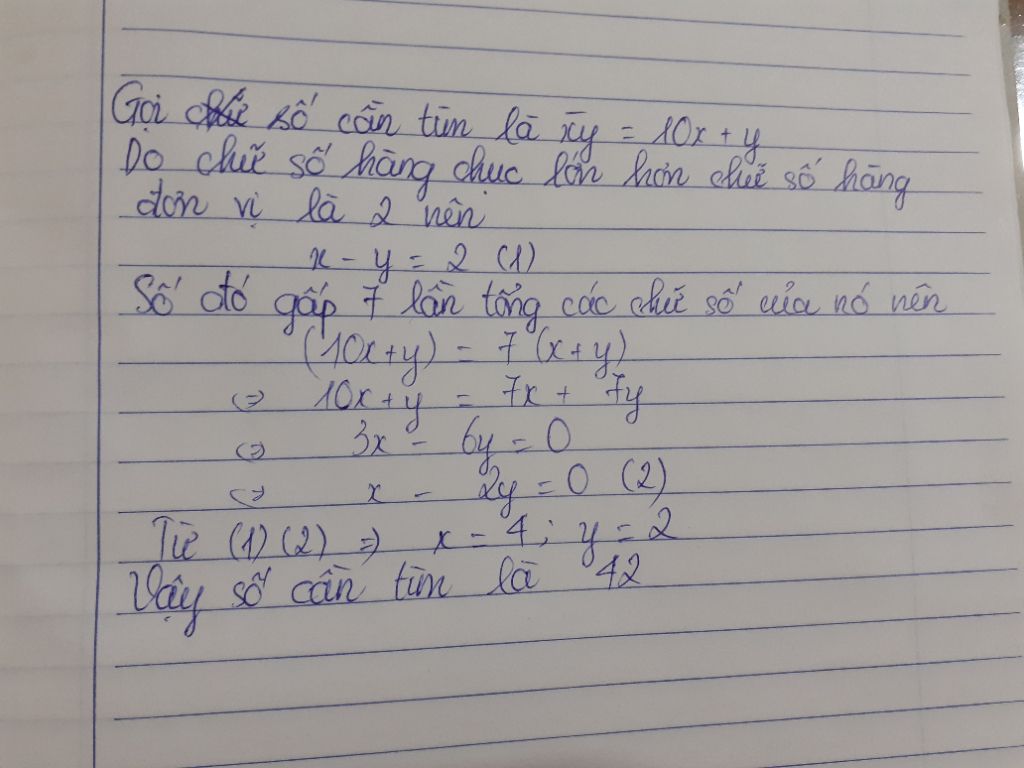 Gọi số cần tìm là x̄y = 10x + y
Do chữ số hàng chục lớn hơn chữ số hàng
đơn vị là 2 nên
x - y = 2 (1)
Số đó gấp 7 lần tổng các chữ số của nó nên
(10x+y) = 7 (x+y)
<=> 10x+y = 7x + 7y
<=> 3x - 6y = 0
<=> x - 2y = 0 (2)
Từ (1) (2) => x = 4 ; y = 2
Vậy số cần tìm là 42